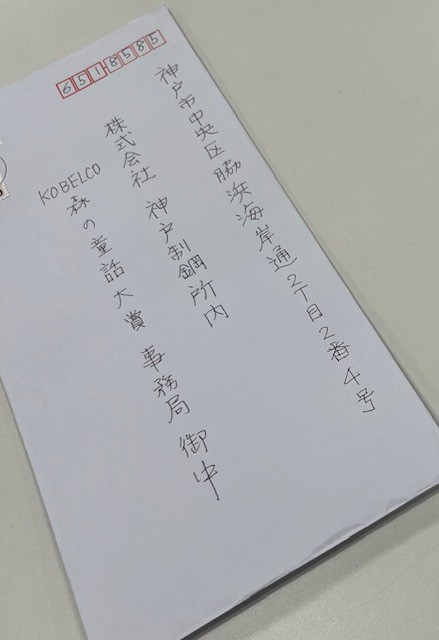 6518585
神戸市中央区脇浜海岸通2丁目2番4号
株式会社 神戸製鋼所内
KOBELCO 森の童話大賞 事務局 御中